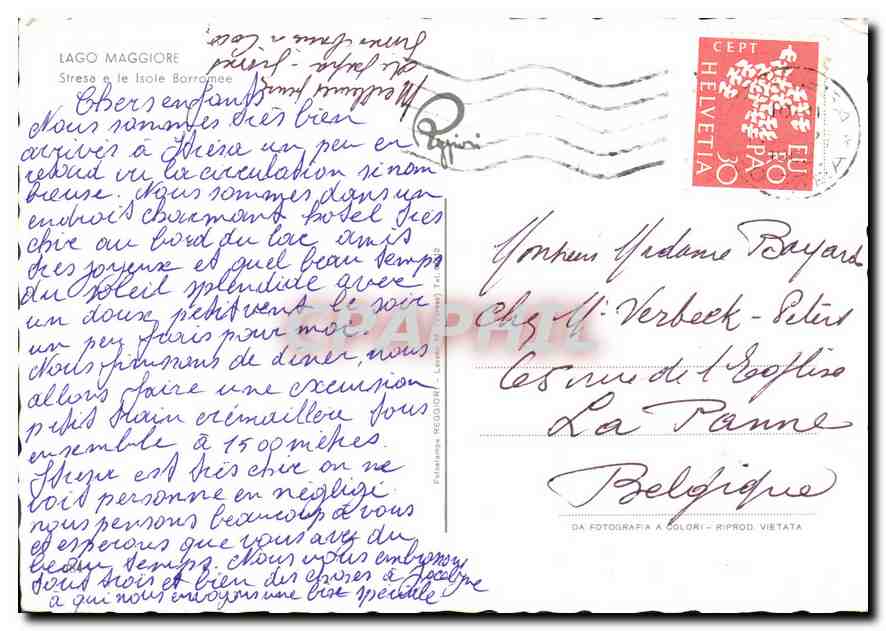 LAGO MAGGIORE
Stresa e le Isole Borromee
Chers enfants
Nous sommes très bien
arrivés à Strésa un peu en
retard vu la circulation si nom
breuse. Nous sommes dans un
endroit charmant hotel très
chic au bord du lac amis
très joyeux et quel beau temps
du soleil splendide avec
un doux petit vent le soir
un peu frais pour moi.
Nous finissons de diner, nous
allons faire une excursion
petit train crémaillère tous
ensemble à 1500 mètres.
Stresa est très chic on ne
voit personne en négligé
nous pensons beaucoup à vous
et esperons que vous avez du
beau temps. Nous vous embrassons
tous trois et bien des choses à Jocelyne
à qui nous envoyons une bise spéciale
Reggiori
CEPT
HELVETIA
EUROPA
30
Fotostampa REGGIORI - Laveno
Monsieur Madame Bayard
Chez Mr Verbeck - Peters
65 rue de l'Eglise
La Panne
Belgique
DA FOTOGRAFIA A COLORI - RIPROD. VIETATA
CPAPHIL